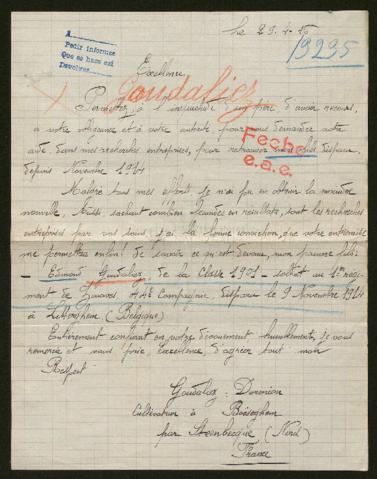 Le 29.4.15
A
Pedir informes
Que se hara asi
Devolver
13235
Excellence
Goudaliez
Permettez à l'inquiétude d'un père d'avoir recours,
à votre obligeance et à votre autorité pour vous demander votre
aide dans mes recherches entreprises, pour retrouver mon fils disparu
depuis Novembre 1914
Fecho
e.a.c.
Malgré tous mes efforts, je n'ai pu en obtenir la moindre
nouvelle. Aussi sachant combien fécondes en résultats, sont les recherches
entreprises par vos soins j'ai la ferme conviction, que votre entremise
me permettra enfin de savoir ce qu'est devenu, mon pauvre fils:
- Edmond Goudaliez, de la Classe 1901 - soldat au 1er régi-
ment de Zouaves, Compagnie, disparu le 9 Novembre 1914
à (Belgique)
Entièrement confiant en votre dévouement humblement, je vous
remercie et vous prie, Excellence d'agréer tout mon
Respect.
Goudaliez
Cultivateur à Boëseghem
par Steenbecque (Nord)
France